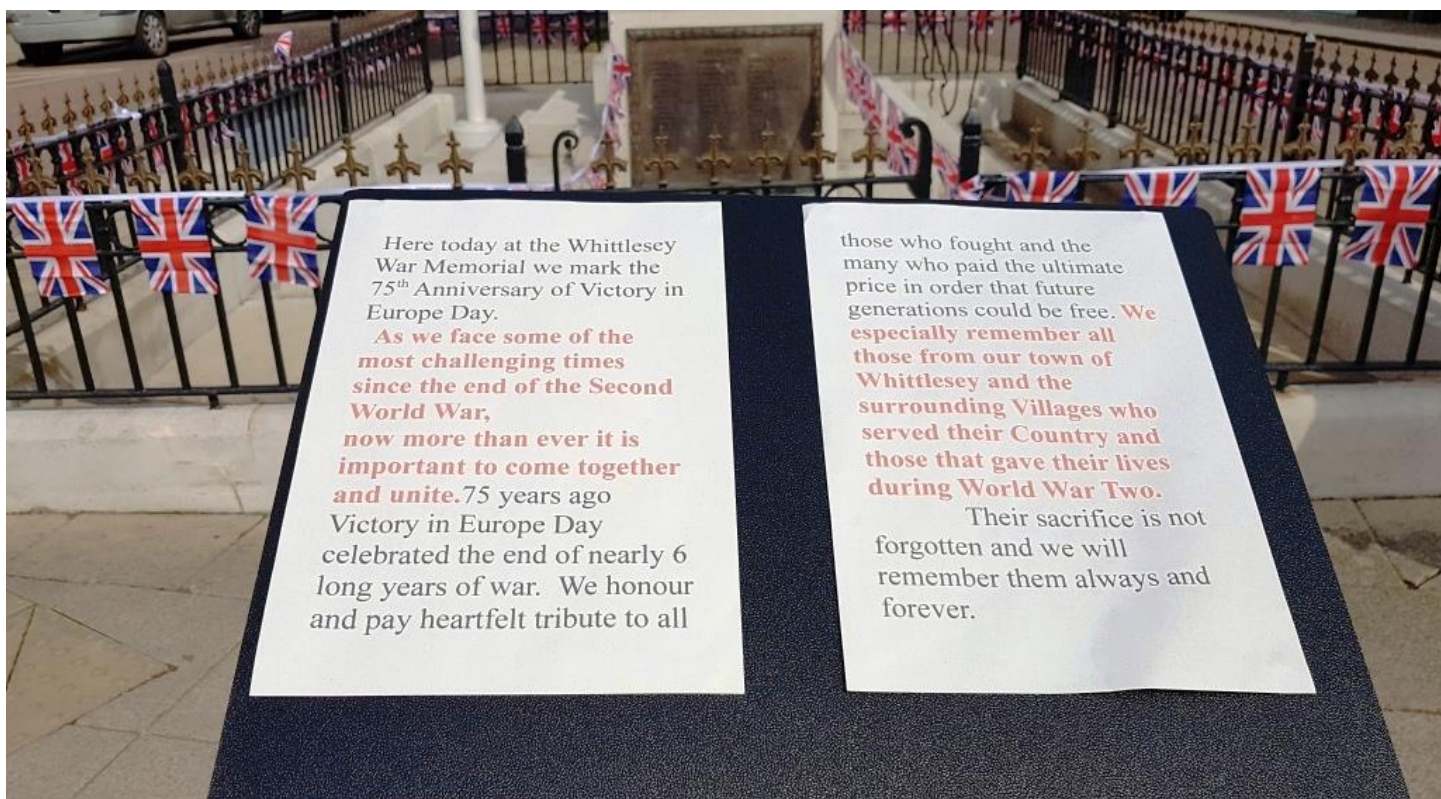 Here today at the Whittlesey
War Memorial we mark the
75th Anniversary of Victory in
Europe Day.
As we face some of the
most challenging times
since the end of the Second
World War,
now more than ever it is
important to come together
and unite.75 years ago
Victory in Europe Day
celebrated the end of nearly 6
long years of war.  We honour
and pay heartfelt tribute to all
those who fought and the
many who paid the ultimate
price in order that future
generations could be free. We
especially remember all
those from our town of
Whittlesey and the
surrounding Villages who
served their Country and
those that gave their lives
during World War Two.
Their sacrifice is not
forgotten and we will
remember them always and
forever.